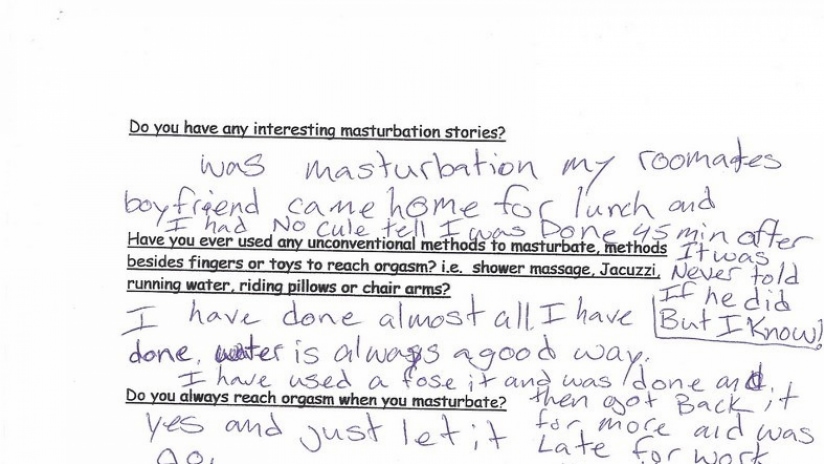 Do you have any interesting masturbation stories?
was masturbation my roomates
boyfriend came home for lunch and
I had No cule tell I was Done 45 min after
It was
Never told
If he did
But I Know!
Have you ever used any unconventional methods to masturbate, methods
besides fingers or toys to reach orgasm? i.e. shower massage, Jacuzzi,
running water, riding pillows or chair arms?
I have done almost all I have
done, water is always a good way.
I have used a fose it and was done and,
then got Back it
for more aid was
Late for work
Do you always reach orgasm when you masturbate?
yes and just let it
go.